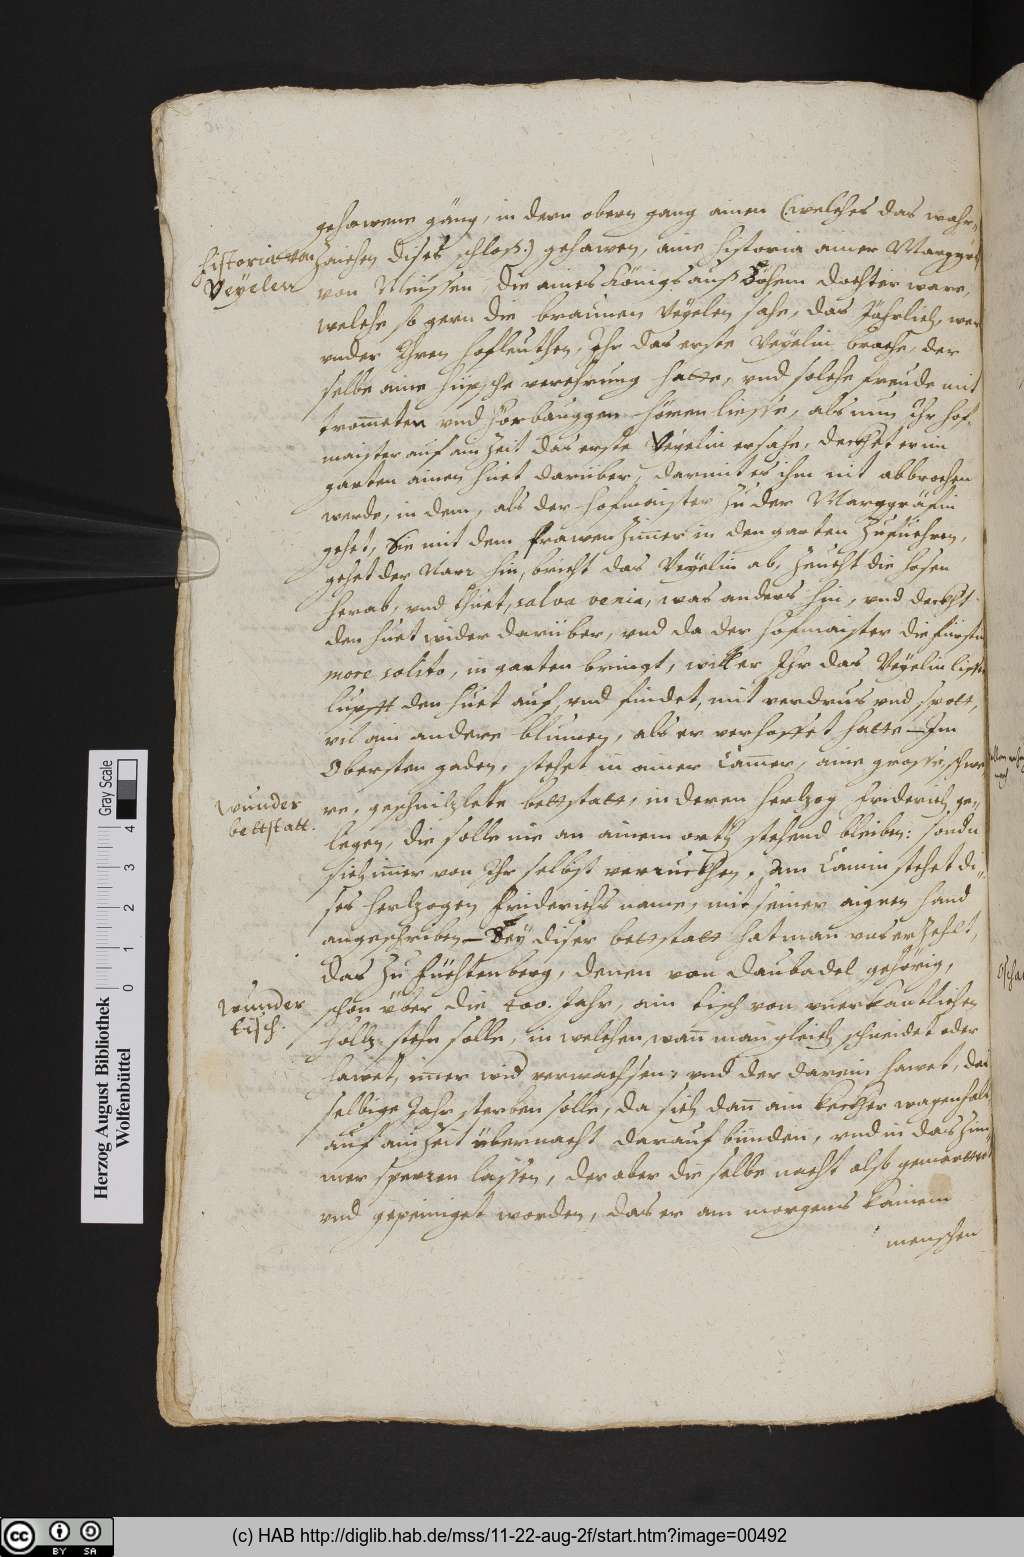 gehawene gäng, in dern obern gang ainen (welches das wahr-
Historia von
Veyelen
zaichen dises schloß:) gehawen, aine historia ainer Marggräf
von Meissen, die aines Königs auß Böhem dochter ware,
welche so gern die braunen Veyelen sahe, das Jährlich, wer
vnder Ihren hofleuthen, Ihr das erste Veyelin brache, der
selbe aine hüpsche verehrung hatte, vnd solche freude mit
trom̅eten vnd hörbauggen hören liesse, als nun Ihr hof-
maister auf ain Zeit das erste Veyelin ersahe, deckhet er im
garten ainen huet darüber, darmit es ihm nit abbrochen
werde, in dem, als der hofmaister zu der Marggräfin
gehet, Sie mit dem frawen Zim̅er in den garten Zufuehren,
gehet der Narr hin, bricht das Veyelin ab, Zeucht die hosen
herab, vnd thuet, salva venia, was anders hin, vnd deckht
den huet wider darüber, vnd da der hofmaister die fürstin
more solito, in garten bringt, will er Ihr das Veyelin
lupfft den huet auf, vnd findet, mit verdrus vnd spott,
vil ain andere blumen, als er verhoffet hatte – Im
Obersten gaden, stehet in ainer Cam̅er, aine grosse, schwe
Wunder
bettstatt.
re, geschnitzlete bettstatt, in deren hertzog Friderich ge-
legen, die solle nie an ainem orth stehend bleiben: sonder
sich im̅er von Ihr selbst verruckhen. Am Camin stehet di-
ses hertzogen Friderichs name, mit seiner aignen hand
angeschriben – Bey diser bettstatt hat man vns erzehlt,
das zu Fürstenberg, denen von Daubadel gehörig,
Wunder
tisch.
schon über die 400. Jahr, ain tisch von vnerkantlichem
holtz stehn solle, in welchen, wan̅ man gleich schneidet oder
hawet, im̅er wid verwachsen, vnd der darein hawet, des
selbige Jahr sterben solle, da sich dan̅ ain keckher wagenhals
auf ain Zeit übernacht darauf binden, vnd in das Zim-
mer sperren lassen, der aber die selbe nacht also gemartert
vnd gepeiniget worden, das er am morgens kainem
menschen
Herzog August Bibliothek
Wolfenbüttel
Gray Scale
0 1 2 3 4
(c) HAB http://diglib.hab.de/mss/11-22-aug-2f/start.htm?image=00492
cc BY SA